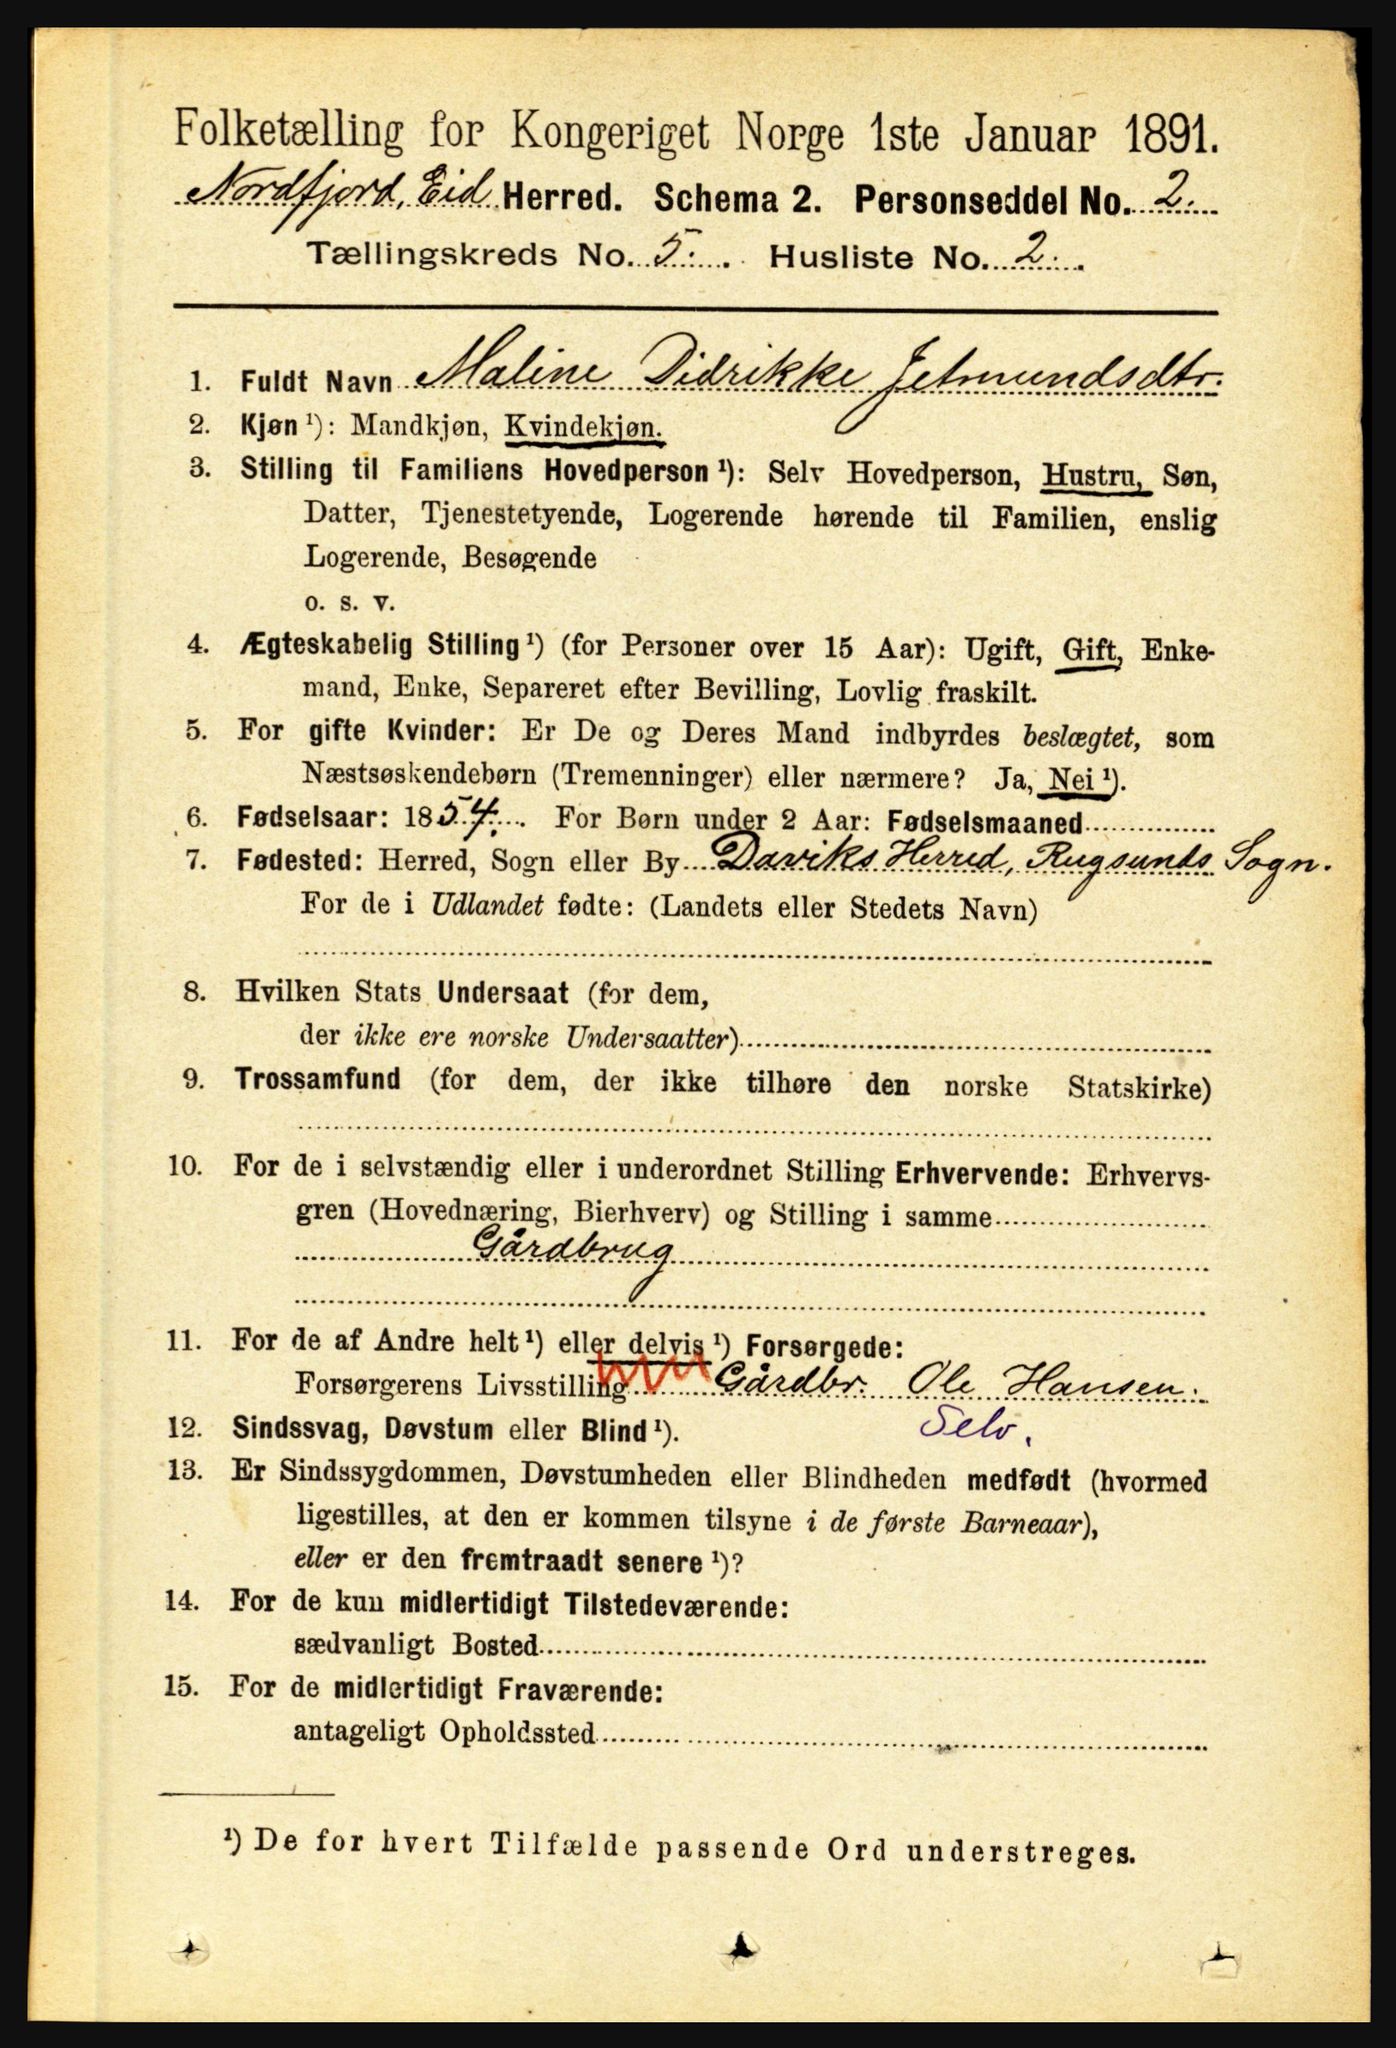 Folketælling for Kongeriget Norge 1ste Januar 1891.
Nordfjord, Eid Herred. Schema 2. Personseddel No. 2.
Tællingskreds No. 5. Husliste No. 2.
1. Fuldt Navn Maline Didrikke Jetmundsdtr.
2. Kjøn ¹): Mandkjøn, Kvindekjøn.
3. Stilling til Familiens Hovedperson ¹): Selv Hovedperson, Hustru, Søn,
Datter, Tjenestetyende, Logerende hørende til Familien, enslig
Logerende, Besøgende
o. s. v.
4. Ægteskabelig Stilling ¹) (for Personer over 15 Aar): Ugift, Gift, Enke-
mand, Enke, Separeret efter Bevilling, Lovlig fraskilt.
5. For gifte Kvinder: Er De og Deres Mand indbyrdes beslægtet, som
Næstsøskendebørn (Tremenninger) eller nærmere? Ja, Nei ¹).
6. Fødselsaar: 1854. For Børn under 2 Aar: Fødselsmaaned
7. Fødested: Herred, Sogn eller By Daviks Herred, Rugsunds Sogn.
For de i Udlandet fødte: (Landets eller Stedets Navn)
8. Hvilken Stats Undersaat (for dem,
der ikke ere norske Undersaatter)
9. Trossamfund (for dem, der ikke tilhøre den norske Statskirke)
10. For de i selvstændig eller i underordnet Stilling Erhvervende: Erhvervs-
gren (Hovednæring, Bierhverv) og Stilling i samme
Gårdbrug
11. For de af Andre helt ¹) eller delvis ¹) Forsørgede:
Forsørgerens Livsstilling Gårdbr. Ole Hansen.
12. Sindssvag, Døvstum eller Blind ¹). Selv.
13. Er Sindssygdommen, Døvstumheden eller Blindheden medfødt (hvormed
ligestilles, at den er kommen tilsyne i de første Barneaar),
eller er den fremtraadt senere ¹)?
14. For de kun midlertidigt Tilstedeværende:
sædvanligt Bosted
15. For de midlertidigt Fraværende:
antageligt Opholdssted
¹) De for hvert Tilfælde passende Ord understreges.